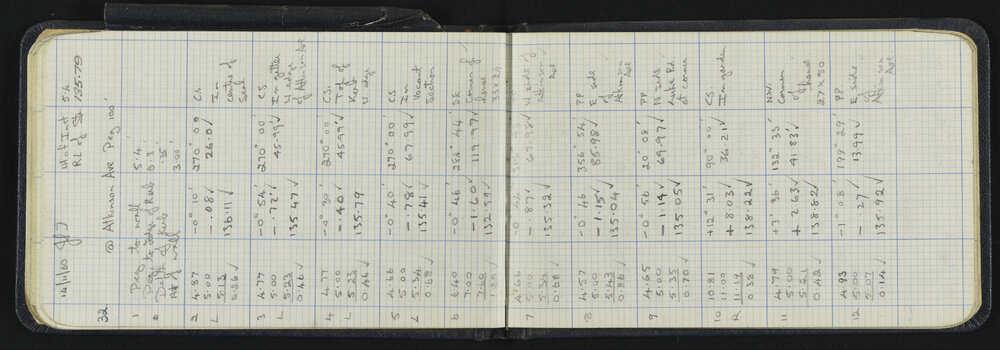 14/11/60
Ht of Inst 5.4
RL of Stn 135.79
32.
@ Atkinson Ave Peg 100'
1 Peg to wall 5.4'
Peg to edge of Kerb 0.3'
Depth of Kerb .35'
Ht of wall 3.00'
2 4.87 -0° 10' 270° 00 C.S.
L 5.00 -.08✓ 26.0✓ In
5.13 136.11✓ centre of
0.26✓ Seal
3 4.77 -0° 54' 270° 00' C.S
L 5.00 -.72✓ 45.99✓ In gutter
5.23 135.47✓ W edge
0.46✓ of Atkinson Ave
4 4.77 -0° 30' 270° 00' C.S.
L 5.00 -.40✓ 45.99✓ Top of
5.23 135.79 Kerb
0.46✓ W edge
5 4.66 -0° 40' 270° 00' C.S
L 5.00 -.78✓ 67.99✓ In
5.34 135.41✓ Vacant
0.68✓ Section
6 6.40 -0° 46' 284° 44' S.E
7.00 -1.60✓ 119.97✓ Corner of
7.60 132.59✓ house
1.20✓ 33x24
7 4.66 69.98✓ W side of
5.00 -.87✓ Atkinson
5.34 135.32✓ Ave
0.68✓
8 4.57 -0° 46' 356° 54' PP
5.00 -1.15✓ 85.98✓ E. side
5.43 135.04✓ of
0.86✓ Atkinson
Ave
9 4.65 -0° 56' 20° 08' PP
5.00 -1.14✓ 69.97✓ N side
5.35 135.05✓ Luke Rd
0.70✓ at corner
10 10.81 +12° 31' 90° 00' C.S.
R 11.00 +8.03✓ 36.21✓ In garden
11.19 138.22✓
0.38✓
11 4.79 +3° 36' 132° 33' N.W.
5.00 +2.63✓ 41.83✓ Corner
5.21 138.82✓ of
0.42✓ house
27x50
12 4.93 -1° 08' 199° 29' PP.
5.00 -.27✓ 13.99✓ E. side
5.07 135.92✓ of
0.14✓ Atkinson
Ave.